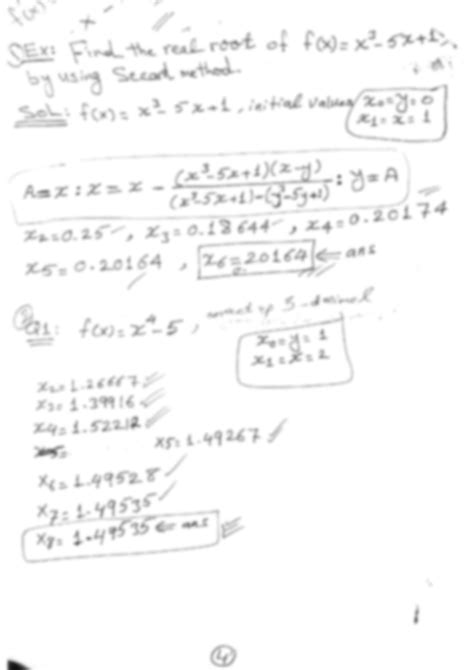 f(x)= x
Ex: Find the real root of f(x)= x³-5x+1
by using Secant method.
Sol: f(x)= x³-5x+1, initial values x₀=y=0
x₁=x=1
A=x : x = x - (x³-5x+1)(x-y) / (x³-5x+1)-(y³-5y+1) : y=A
x₂=0.25, x₃=0.18644, x₄=0.20174
x₅=0.20164, x₆=20164 ⇐ ans
Q1: f(x)=x⁴-5, correct 5-decimal
x₀=y=1
x₁=x=2
x₂=1.26667
x₃=1.39916
x₄=1.52212
x₅=1.49267
x₆=1.49528
x₇=1.49535
x₈=1.49535 ⇐ ans
4